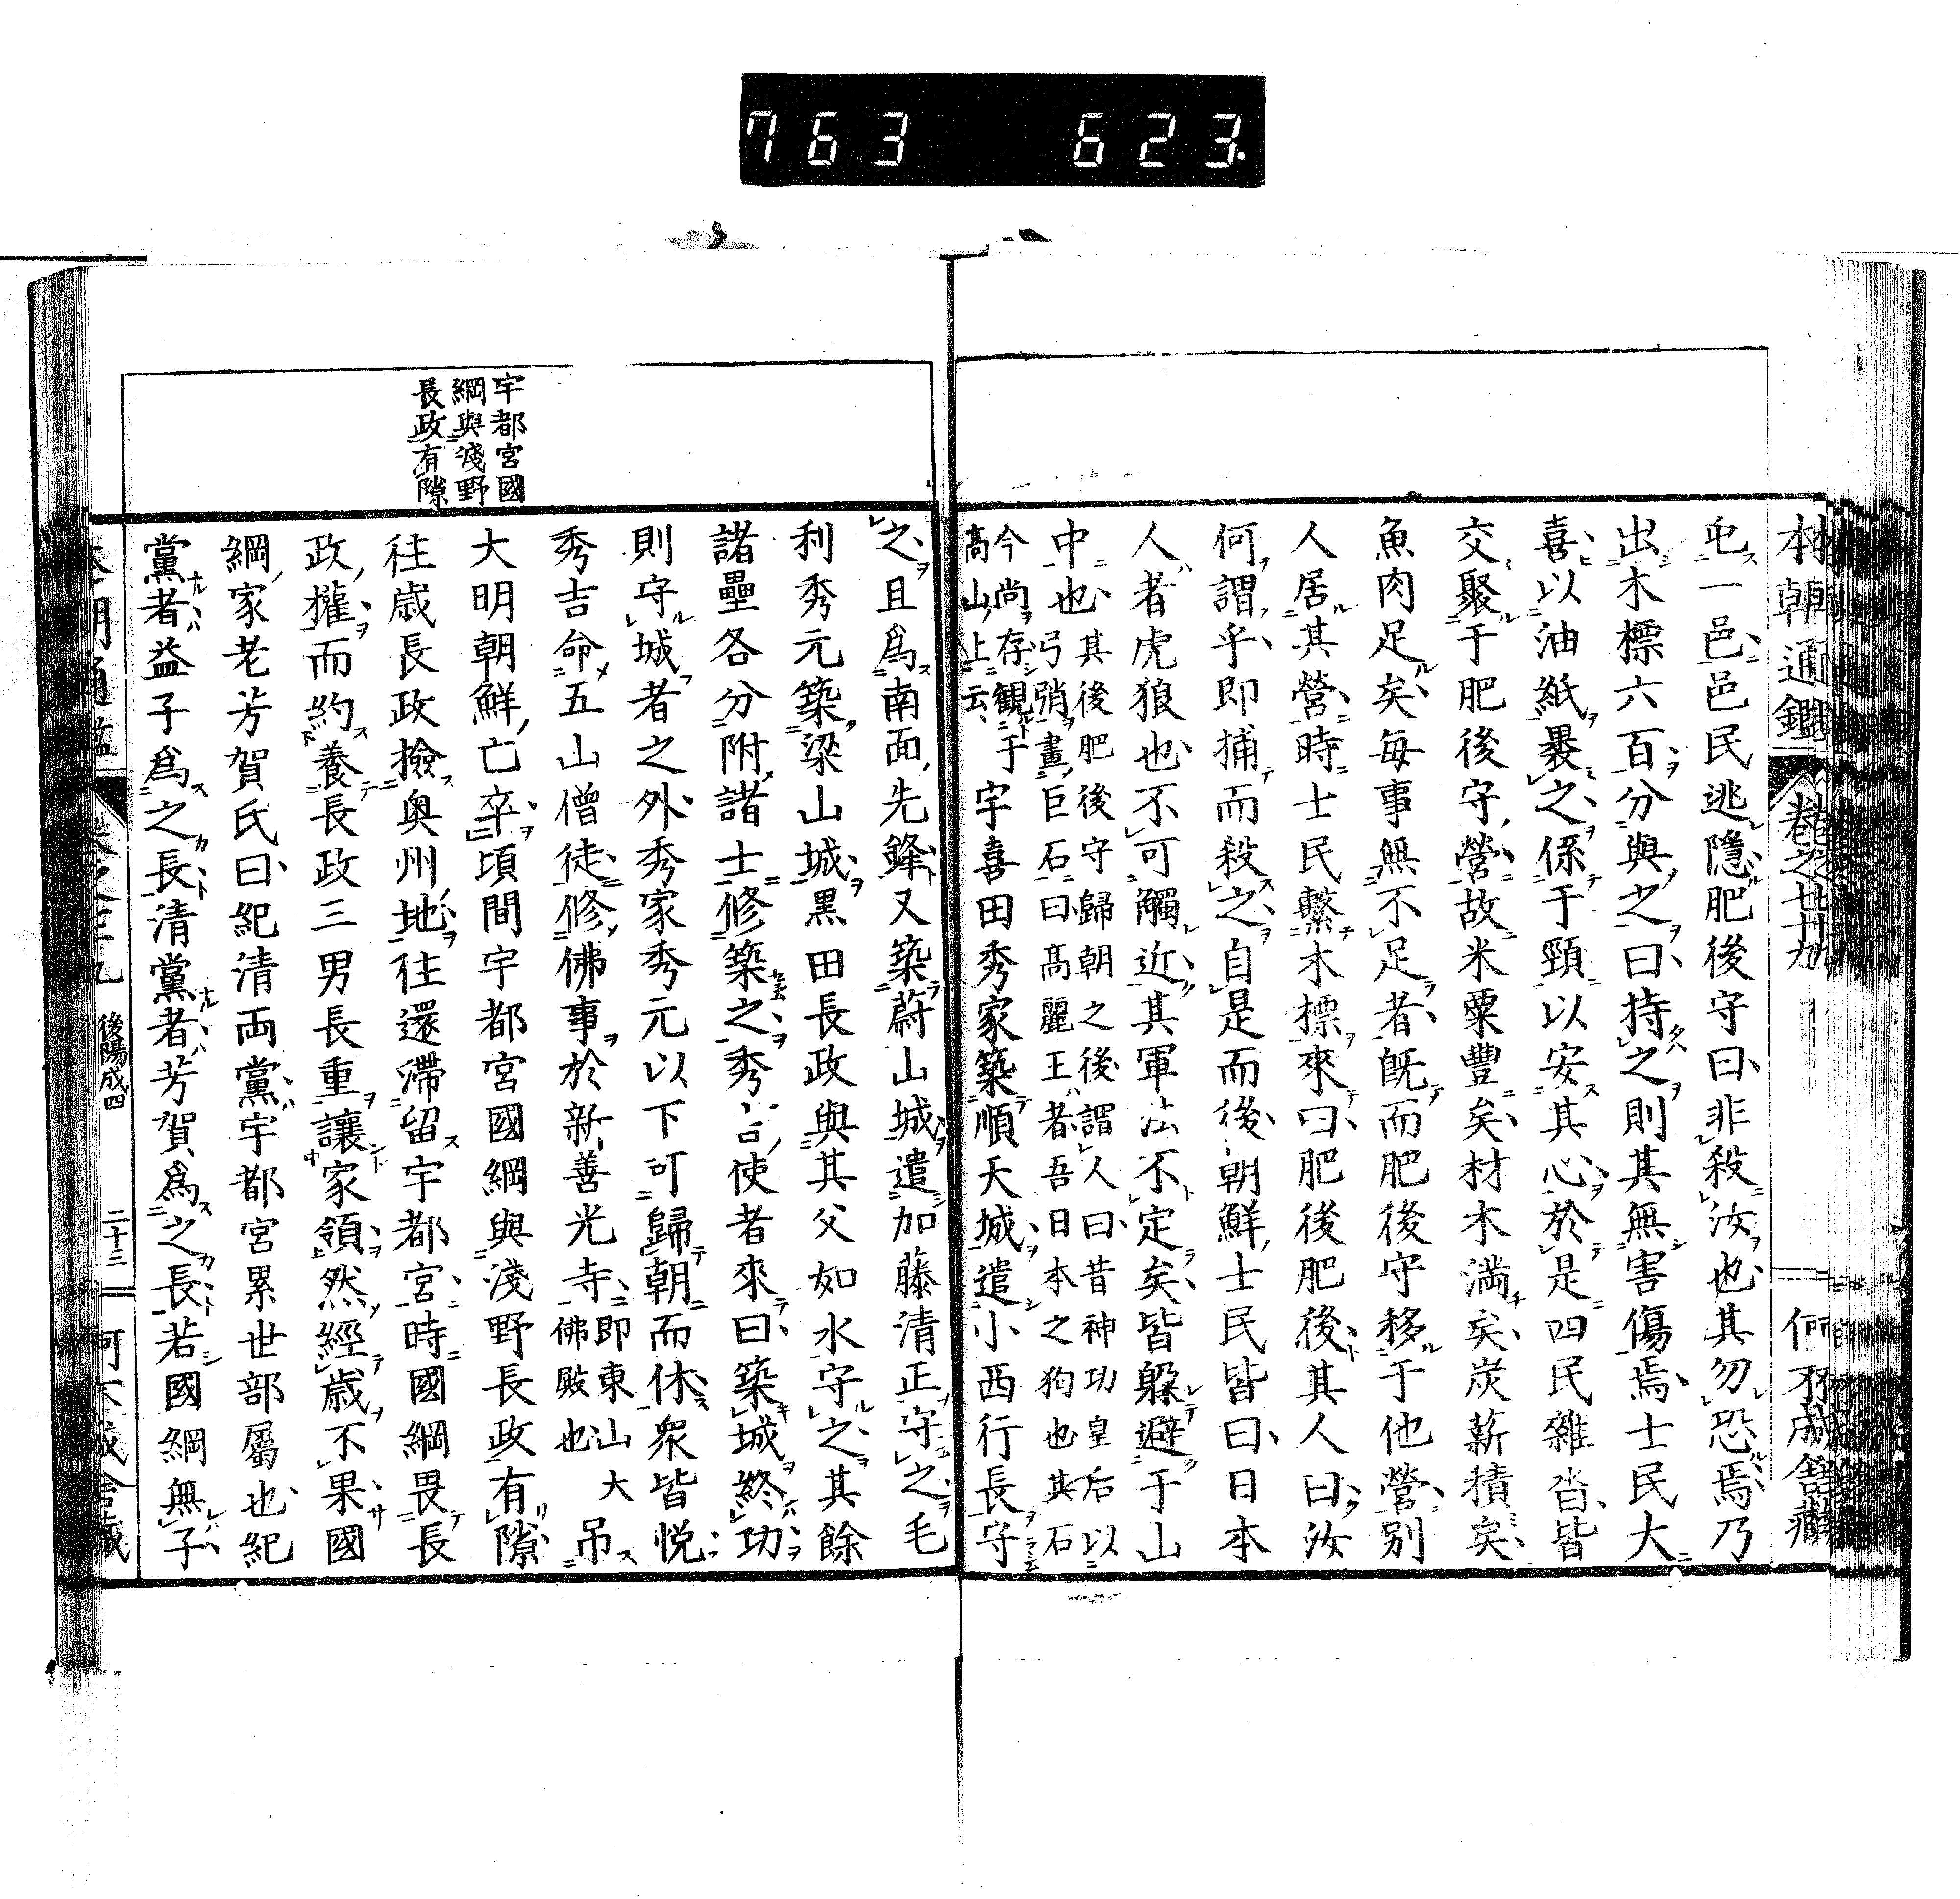 763 623.
本朝通鑑 卷之七十九 何不成舍藏
屯一邑邑民逃隱肥後守曰非殺汝也其勿恐焉乃
出木標六百分與之曰持之則其無害傷焉士民大
喜以油紙裹之係于頸以安其心於是四民雜沓皆
交聚于肥後守營故米粟豐矣材木滿矣炭薪積矣
魚肉足矣每事無不足者既而肥後守移于他營別
人居其營時士民繫木標來曰肥後肥後其人曰汝
何謂乎即捕而殺之自是而後朝鮮士民皆曰日本
人者虎狼也不可觸近其軍法不定矣皆躱避于山
中也其後肥後守歸朝之後謂人曰昔神功皇后以
弓弰畫巨石曰高麗王者吾日本之狗也其石
今尚存観于
高山上云
宇喜田秀家築順天城遣小西行長守
之且爲南面先鋒又築蔚山城遣加藤清正守之毛
利秀元築梁山城黒田長政與其父如水守之其餘
諸壘各分附諸士修築之秀吉使者來曰築城終功
則守城者之外秀家秀元以下可歸朝而休衆皆悦
秀吉命五山僧徒修佛事於新善光寺即東山大
佛殿也
吊
大明朝鮮亡卒頃間宇都宮國綱與淺野長政有隙
往歳長政撿奥州地往還滯留宇都宮時國綱畏長
政權而約養長政三男長重讓家領然經歳不果國
綱家老芳賀氏曰紀清両黨宇都宮累世部屬也紀
黨者益子爲之長清黨者芳賀爲之長若國綱無子
宇都宮國
綱與淺野
長政有隙
後陽成四 二十三